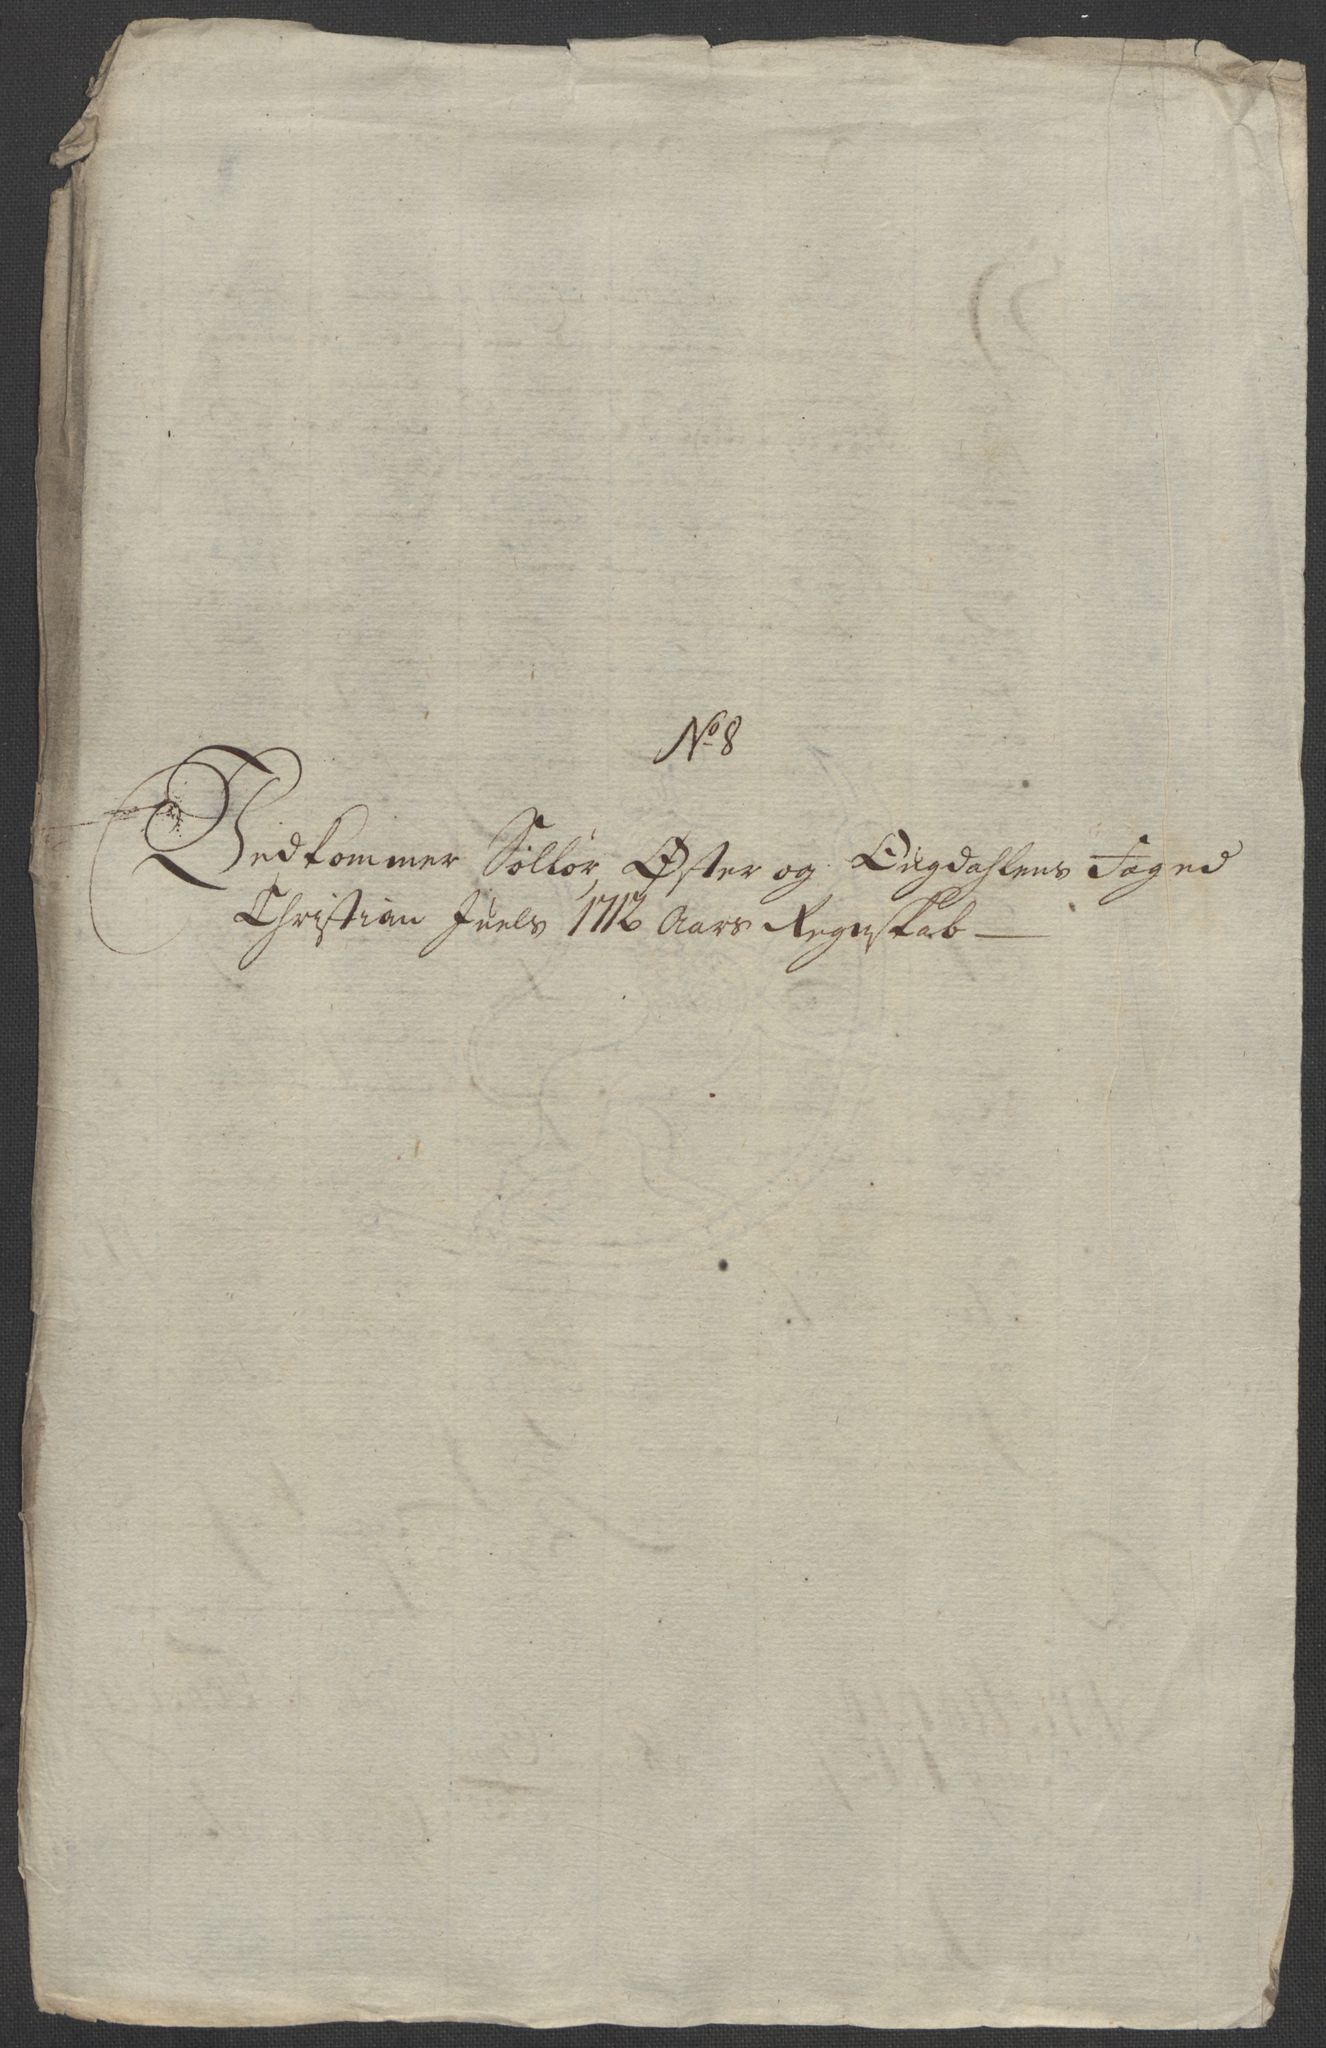 No 8
Vedkommer Sollør, Øster og Oügdahlens Foged
Christian Juels 1712 Aars Regnskab